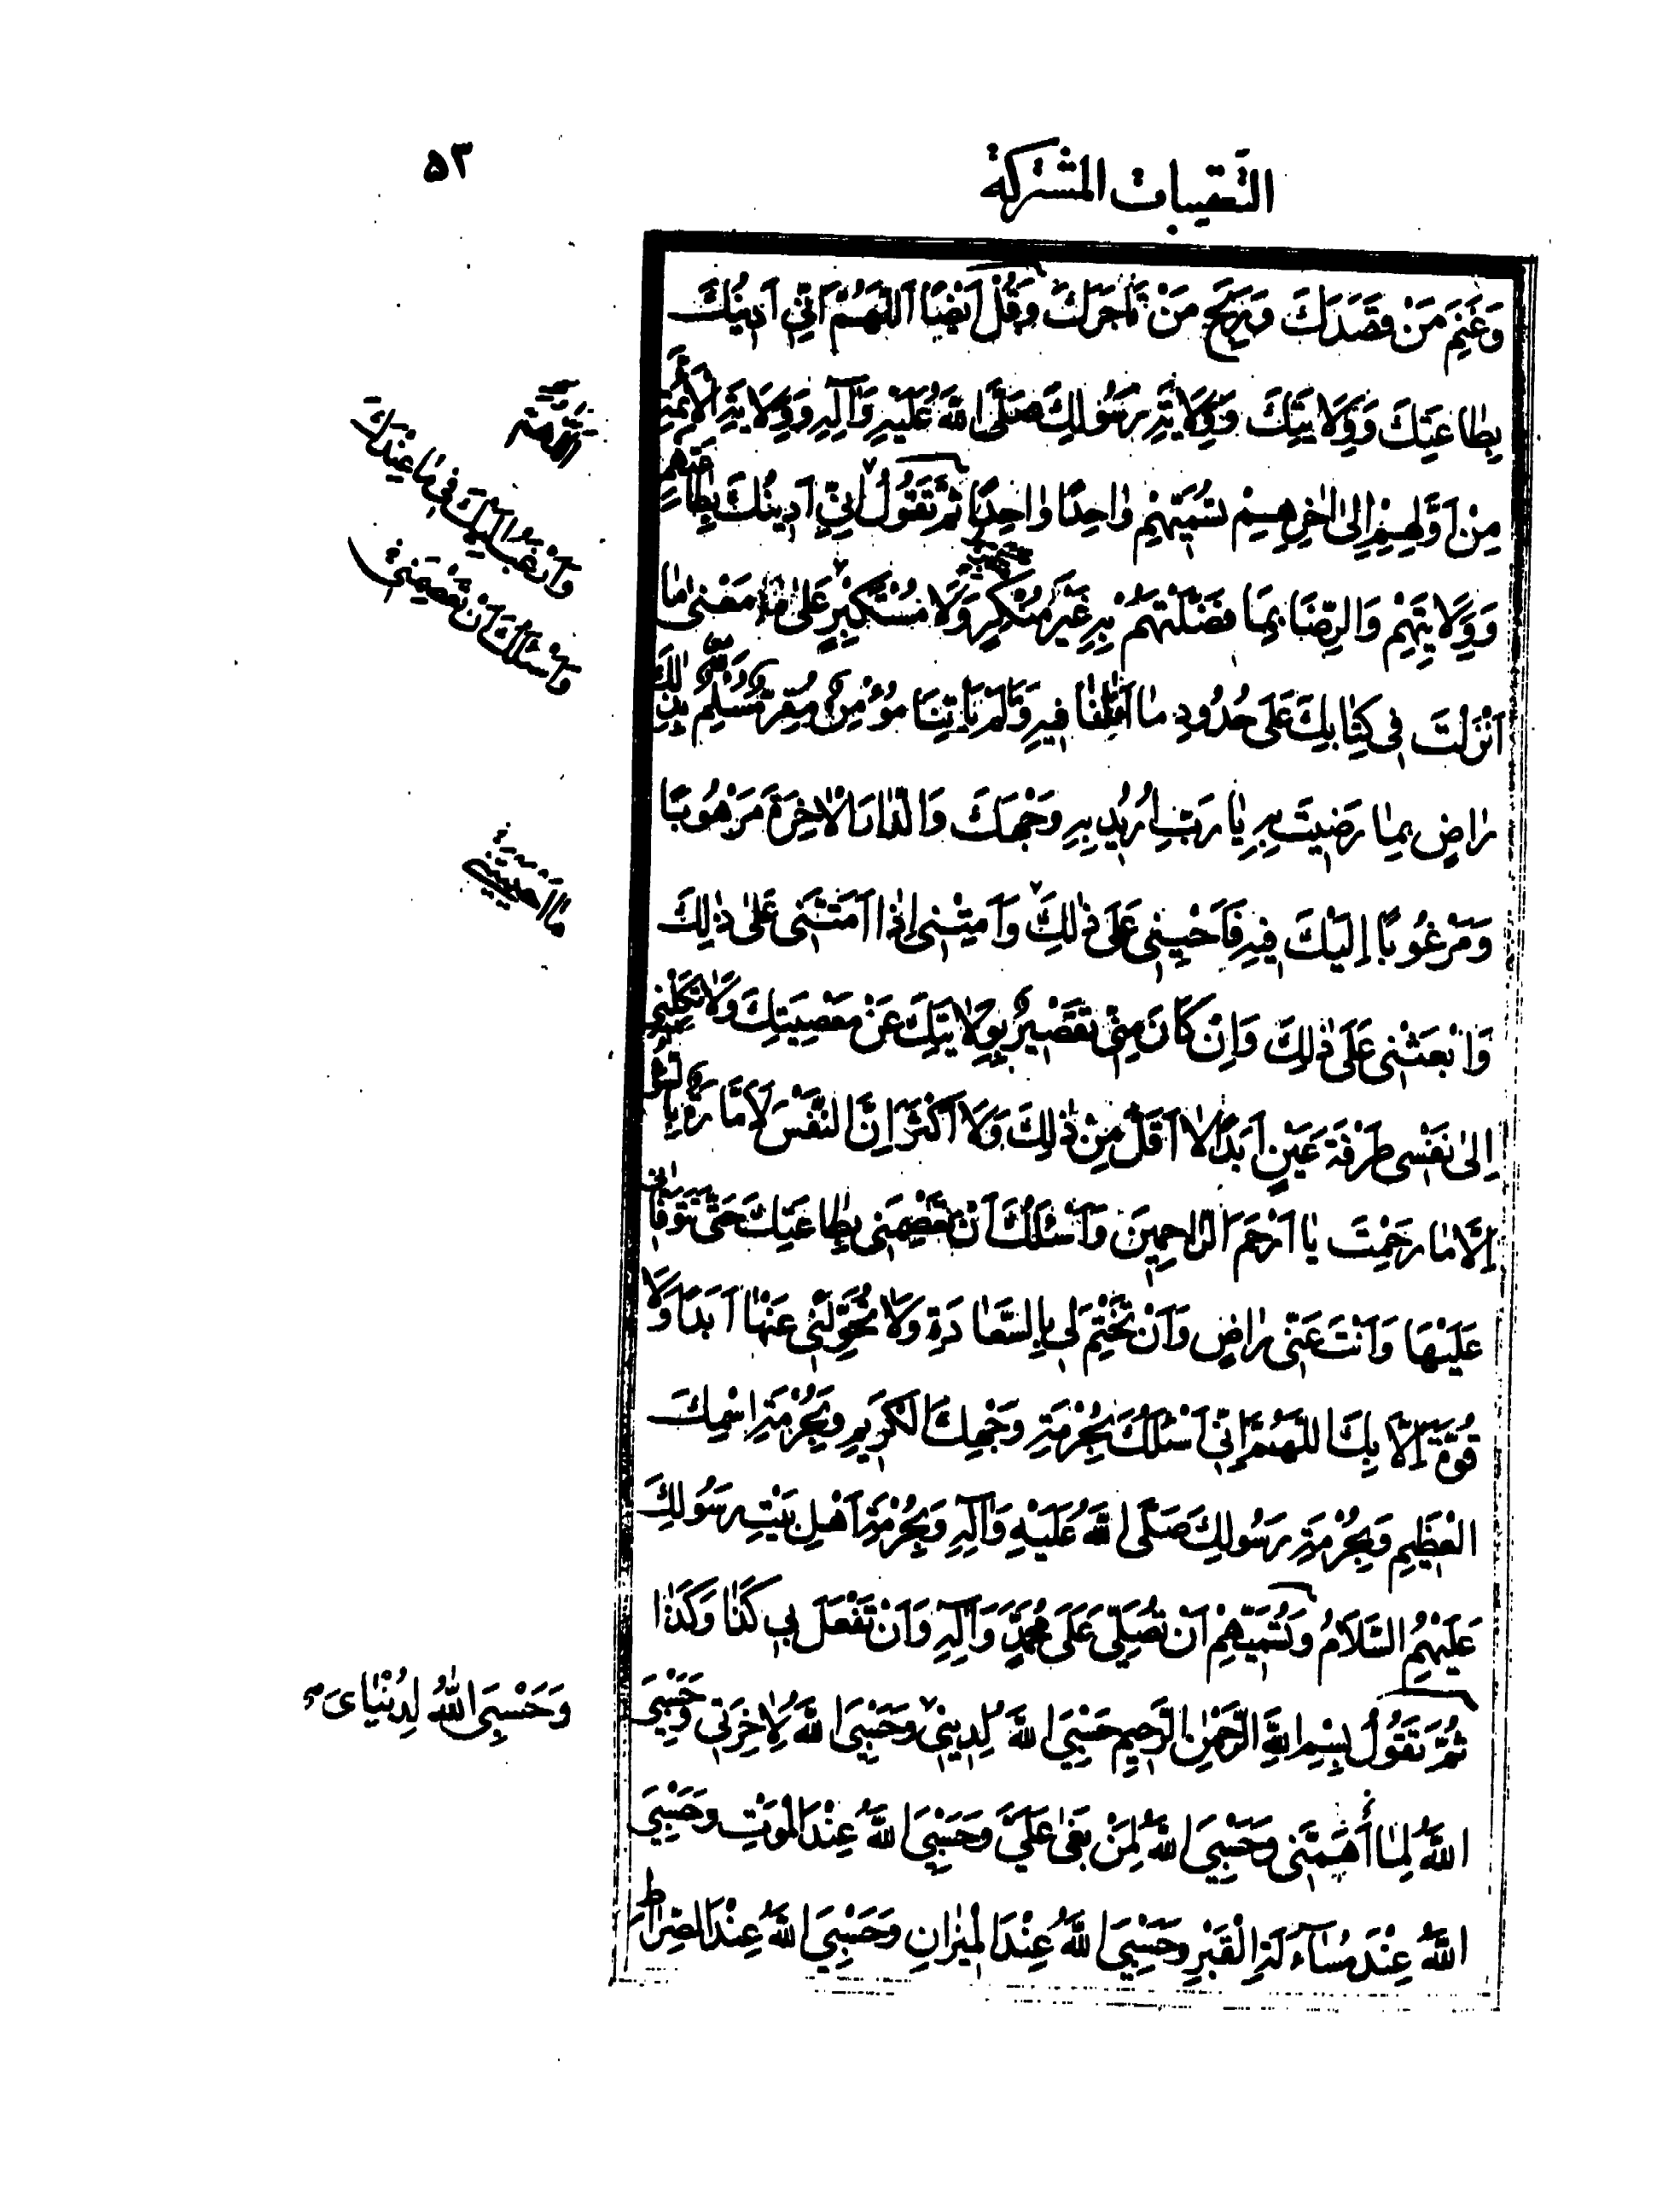 التعقيبات المشتركة
۵۳
وَغَنِمَ مَنْ قَصَدَكَ وَرَبِحَ مَنْ تَاجَرَكَ وَقُلْ اَيْضًا اَللّٰهُمَّ اِنّٖي اَدِينُكَ
بِطَاعَتِكَ وَوِلَايَتِكَ وَوِلَايَةِ رَسُولِكَ صَلَّى اللّٰهُ عَلَيْهِ وَآلِهِ وَوِلَايَةِ الْاَئِمَّةِ
مِنْ اَوَّلِهِمْ اِلىٰ اٰخِرِهِمْ تُسَمِّيهِمْ وَاحِدًا وَاحِدًا ثُمَّ تَقُولُ اِنّٖي اَدِينُكَ بِطَاعَتِهِمْ
وَوِلَايَتِهِمْ وَالرِّضَا بِمَا فَضَّلْتَهُمْ بِهِ غَيْرَ مُنْكِرٍ وَلَا مُسْتَكْبِرٍ عَلىٰ مَعْنىٰ مَا
اَنْزَلْتَ فِي كِتَابِكَ عَلَى حُدُودِ مَا اَتَانَا فِيهِ وَمَا لَمْ يَأْتِنَا مُؤْمِنٌ مُقِرٌّ مُسَلِّمٌ بِذٰلِكَ
رَاضٍ بِمَا رَضِيتَ بِهِ يَا رَبِّ اُرِيدُ بِهِ وَجْهَكَ وَالدَّارَ الْاٰخِرَةَ مَرْهُوبًا
وَمَرْغُوبًا اِلَيْكَ فِيهِ فَاَحْيِنِي عَلَى ذٰلِكَ وَاَمِتْنِي اِذَا اَمَتَّنِي عَلىٰ ذٰلِكَ
وَابْعَثْنِي عَلَى ذٰلِكَ وَاِنْ كَانَ مِنِّي تَقْصِيرٌ بِوِلَايَتِكَ عَنْ مَعْصِيَتِكَ وَلَا تَكِلْنِي
اِلىٰ نَفْسِي طَرْفَةَ عَيْنٍ اَبَدًا لَا اَقَلَّ مِنْ ذٰلِكَ وَلَا اَكْثَرَ اِنَّ النَّفْسَ لَاَمَّارَةٌ بِالسُّوءِ
اِلَّا مَا رَحِمْتَ يَا اَرْحَمَ الرَّاحِمِينَ وَاَسْئَلُكَ اَنْ تَعْصِمَنِي بِطَاعَتِكَ حَتّٰى تَتَوَفَّانِي
عَلَيْهَا وَاَنْتَ عَنِّي رَاضٍ وَاَنْ تَخْتِمَ لِي بِالسَّعَادَةِ وَلَا تُحَوِّلَنِي عَنْهَا اَبَدًا وَلَا
قُوَّةَ اِلَّا بِكَ اَللّٰهُمَّ اِنِّي اَسْئَلُكَ بِحُرْمَةِ وَجْهِكَ الْكَرِيمِ وَبِحُرْمَةِ اسْمِكَ
الْعَظِيمِ وَبِحُرْمَةِ رَسُولِكَ صَلَّى اللّٰهُ عَلَيْهِ وَاٰلِهِ وَبِحُرْمَةِ اَهْلِ بَيْتِ رَسُولِكَ
عَلَيْهِمُ السَّلَامُ وَتُسَمِّيهِمْ اَنْ تُصَلِّيَ عَلَى مُحَمَّدٍ وَآلِهِ وَاَنْ تَفْعَلَ بِي كَذَا وَكَذَا
ثُمَّ تَقُولُ بِسْمِ اللّٰهِ الرَّحْمٰنِ الرَّحِيمِ حَسْبِيَ اللّٰهُ لِدِينِي وَحَسْبِيَ اللّٰهُ لِاٰخِرَتِي وَحَسْبِيَ
اللّٰهُ لِمَا أَهَمَّنِي وَحَسْبِيَ اللّٰهُ لِمَنْ بَغىٰ عَلَيَّ وَحَسْبِيَ اللّٰهُ عِنْدَ الْمَوْتِ وَحَسْبِيَ
اللّٰهُ عِنْدَ مُسَآءَلَةِ الْقَبْرِ وَحَسْبِيَ اللّٰهُ عِنْدَ الْمِيزَانِ وَحَسْبِيَ اللّٰهُ عِنْدَ الصِّرَاطِ
وَاَرْغَبُ اِلَيْكَ فِي مَا عِنْدَكَ
وَاَسْئَلُكَ اَنْ تَعْصِمَنِي
مَا اَحْيَيْتَنِي
وَحَسْبِيَ اللّٰهُ لِدُنْيَايَ